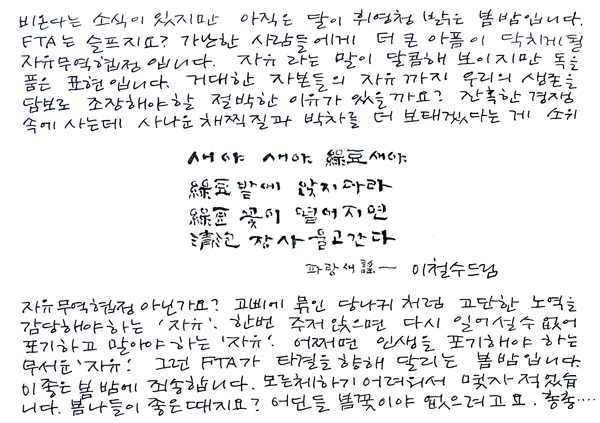 비온다는 소식이 있지만 아직은 달이 휘영청 밝은 봄밤입니다.
FTA는 슬프지요? 가난한 사람들에게 더 큰 아픔이 닥치게 될
자유무역협정입니다. 자유 라는 말이 달콤해 보이지만 독을
품은 표현입니다. 거대한 자본들의 자유까지 우리의 생존을
담보로 조장해야할 절박한 이유가 있을까요? 잔혹한 경쟁
속에 사는데 사나운 채찍질과 박차를 더 보태겠다는 게 소위
새야 새야 綠豆새야
綠豆밭에 앉지마라
綠豆꽃이 떨어지면
淸泡장사 울고간다
파랑새謠— 이철수드림
자유무역협정 아닌가요? 고삐에 묶인 당나귀처럼 고단한 노역을
감당해야하는 '자유'. 한번 주저앉으면 다시 일어설수 없어
포기하고 말아야하는 '자유'. 어쩌면 인생을 포기해야 하는
무서운 '자유'. 그런 FTA가 타결을 향해 달리는 봄밤입니다.
이 좋은 봄밤에 죄송합니다. 모른체하기 어려워서 몇자 적었습
니다. 봄나들이 좋은때지요? 어딘들 봄꽃이야 없으려고요. 총총....